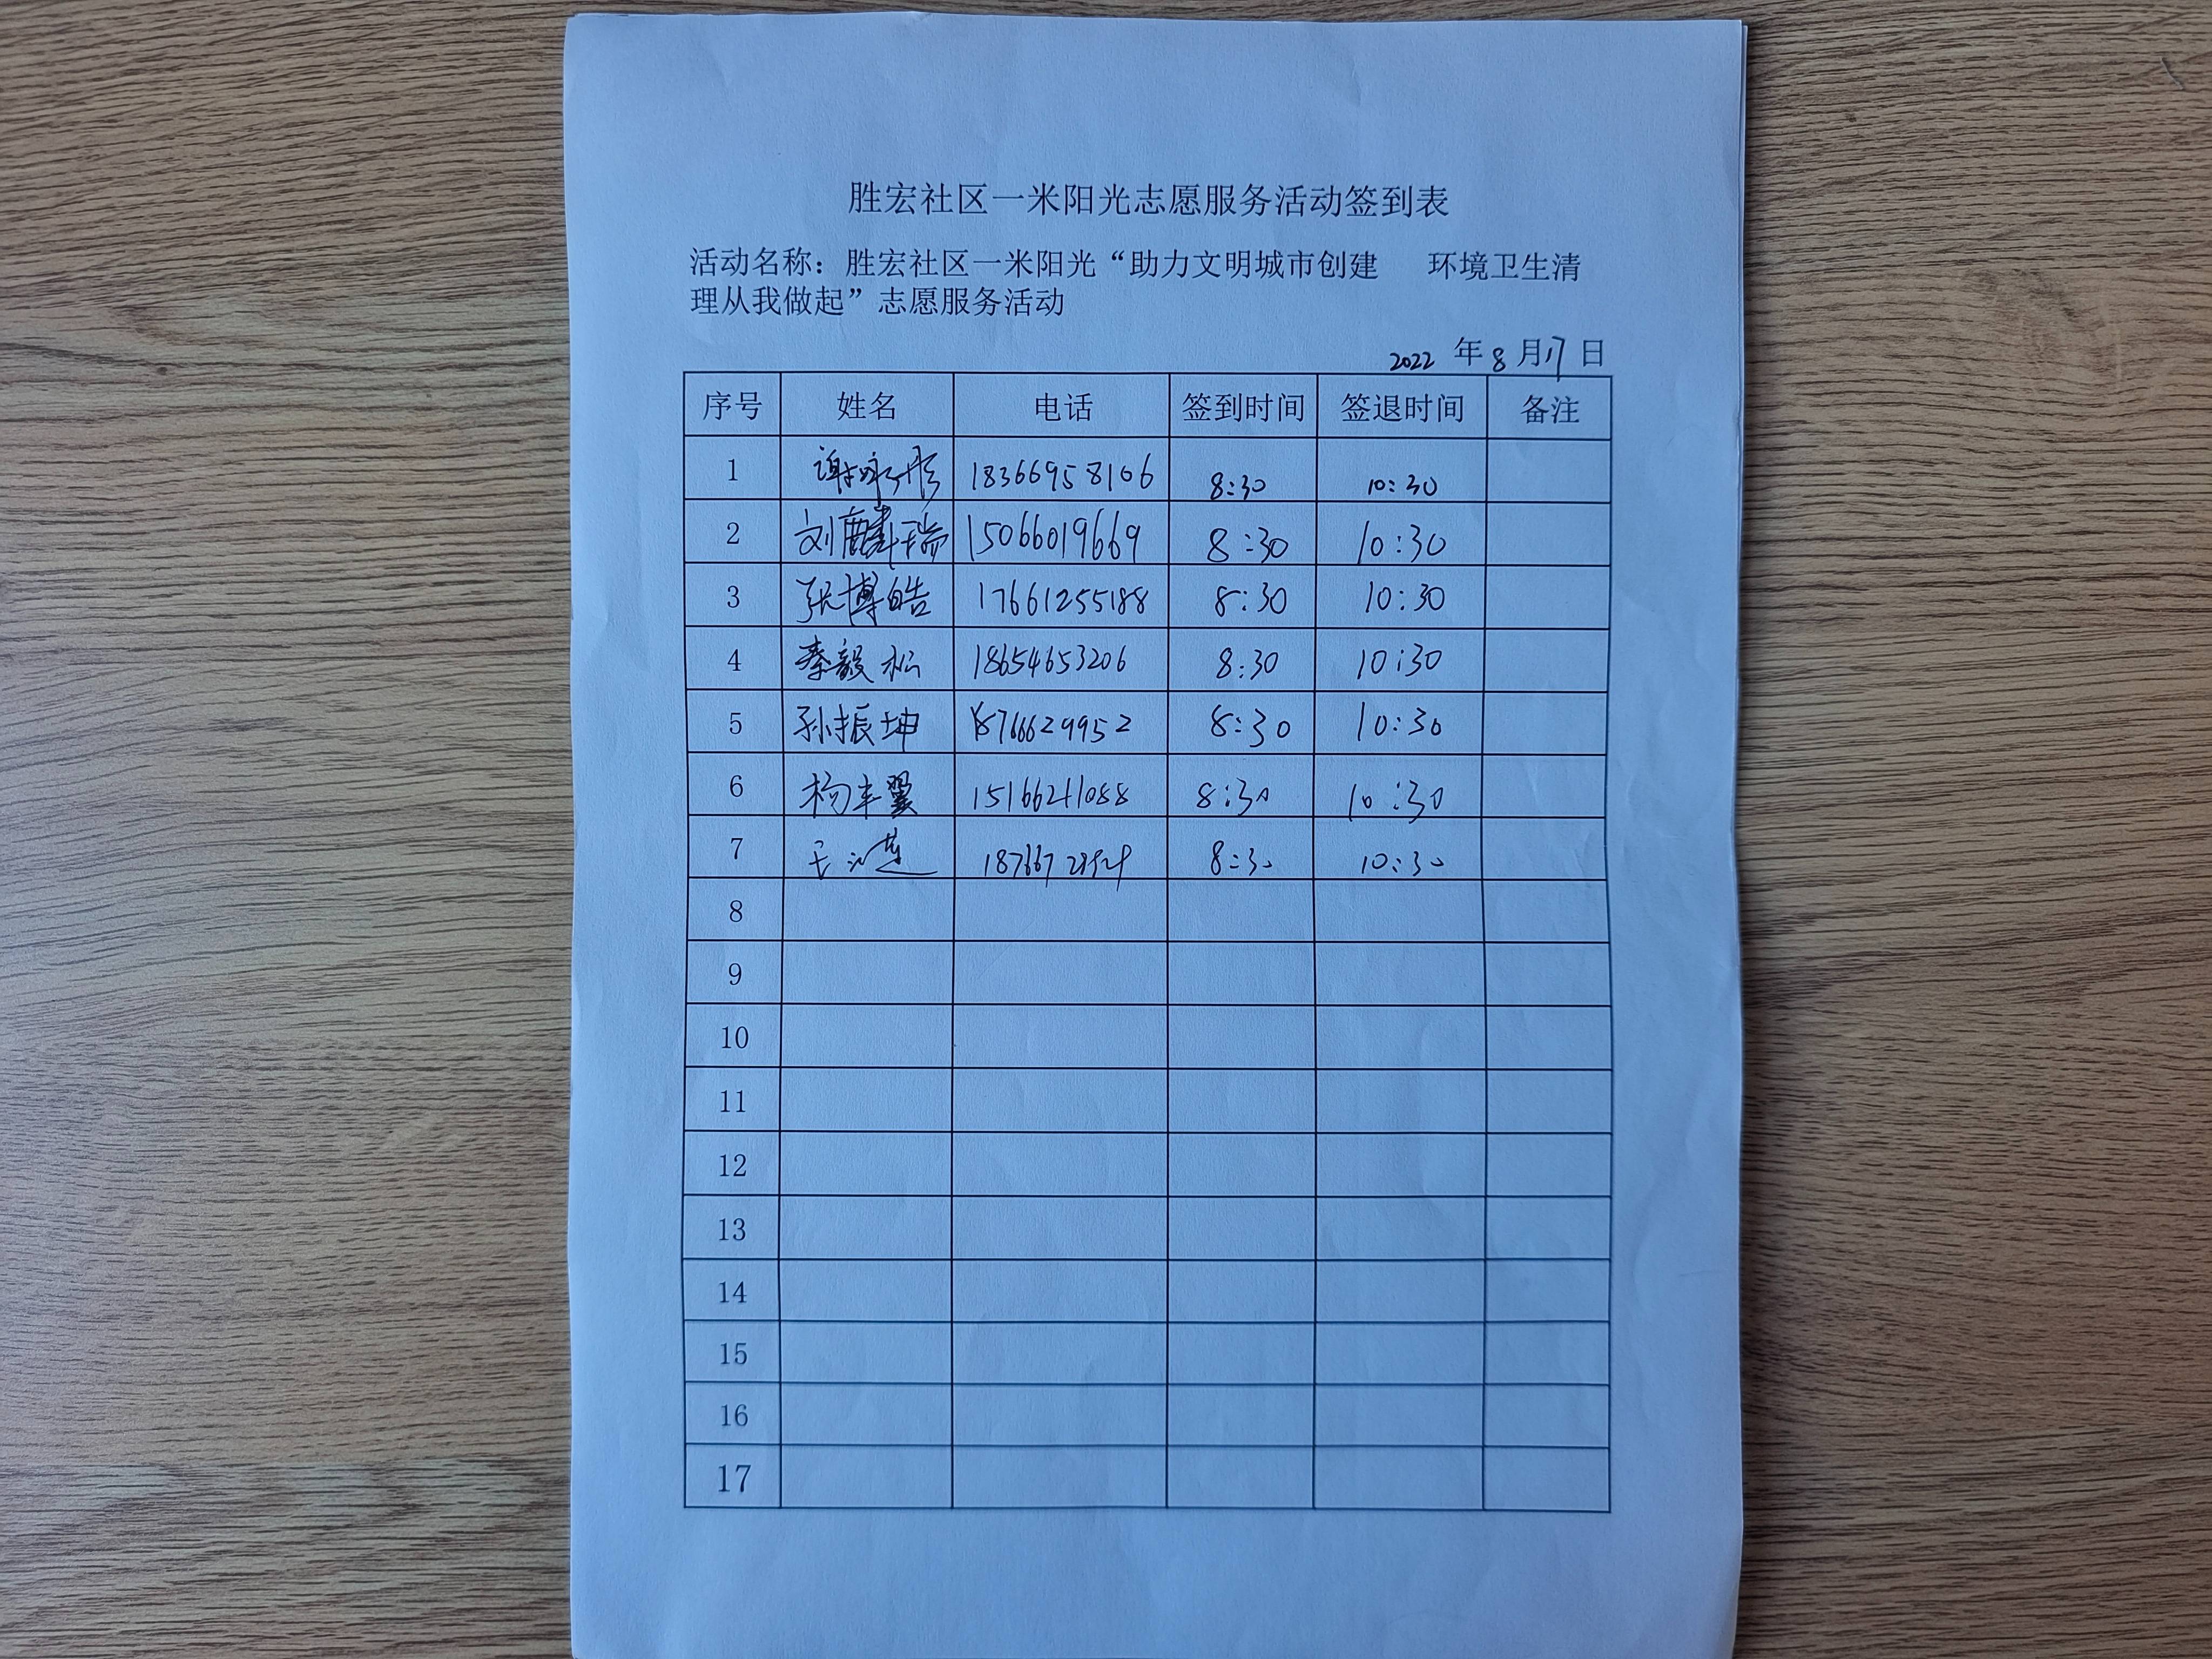 胜宏社区一米阳光志愿服务活动签到表
活动名称：胜宏社区一米阳光“助力文明城市创建 环境卫生清
理从我做起”志愿服务活动
2022 年 8 月 17 日
序号 姓名 电话 签到时间 签退时间 备注
1 18366958106 8:30 10:30
2 刘麟瑞 15066019669 8:30 10:30
3 张博皓 17661255188 8:30 10:30
4 秦毅松 18654653206 8:30 10:30
5 孙振坤 18766629952 8:30 10:30
6 杨丰翼 8:30 10:30
7 8:30 10:30
8
9
10
11
12
13
14
15
16
17